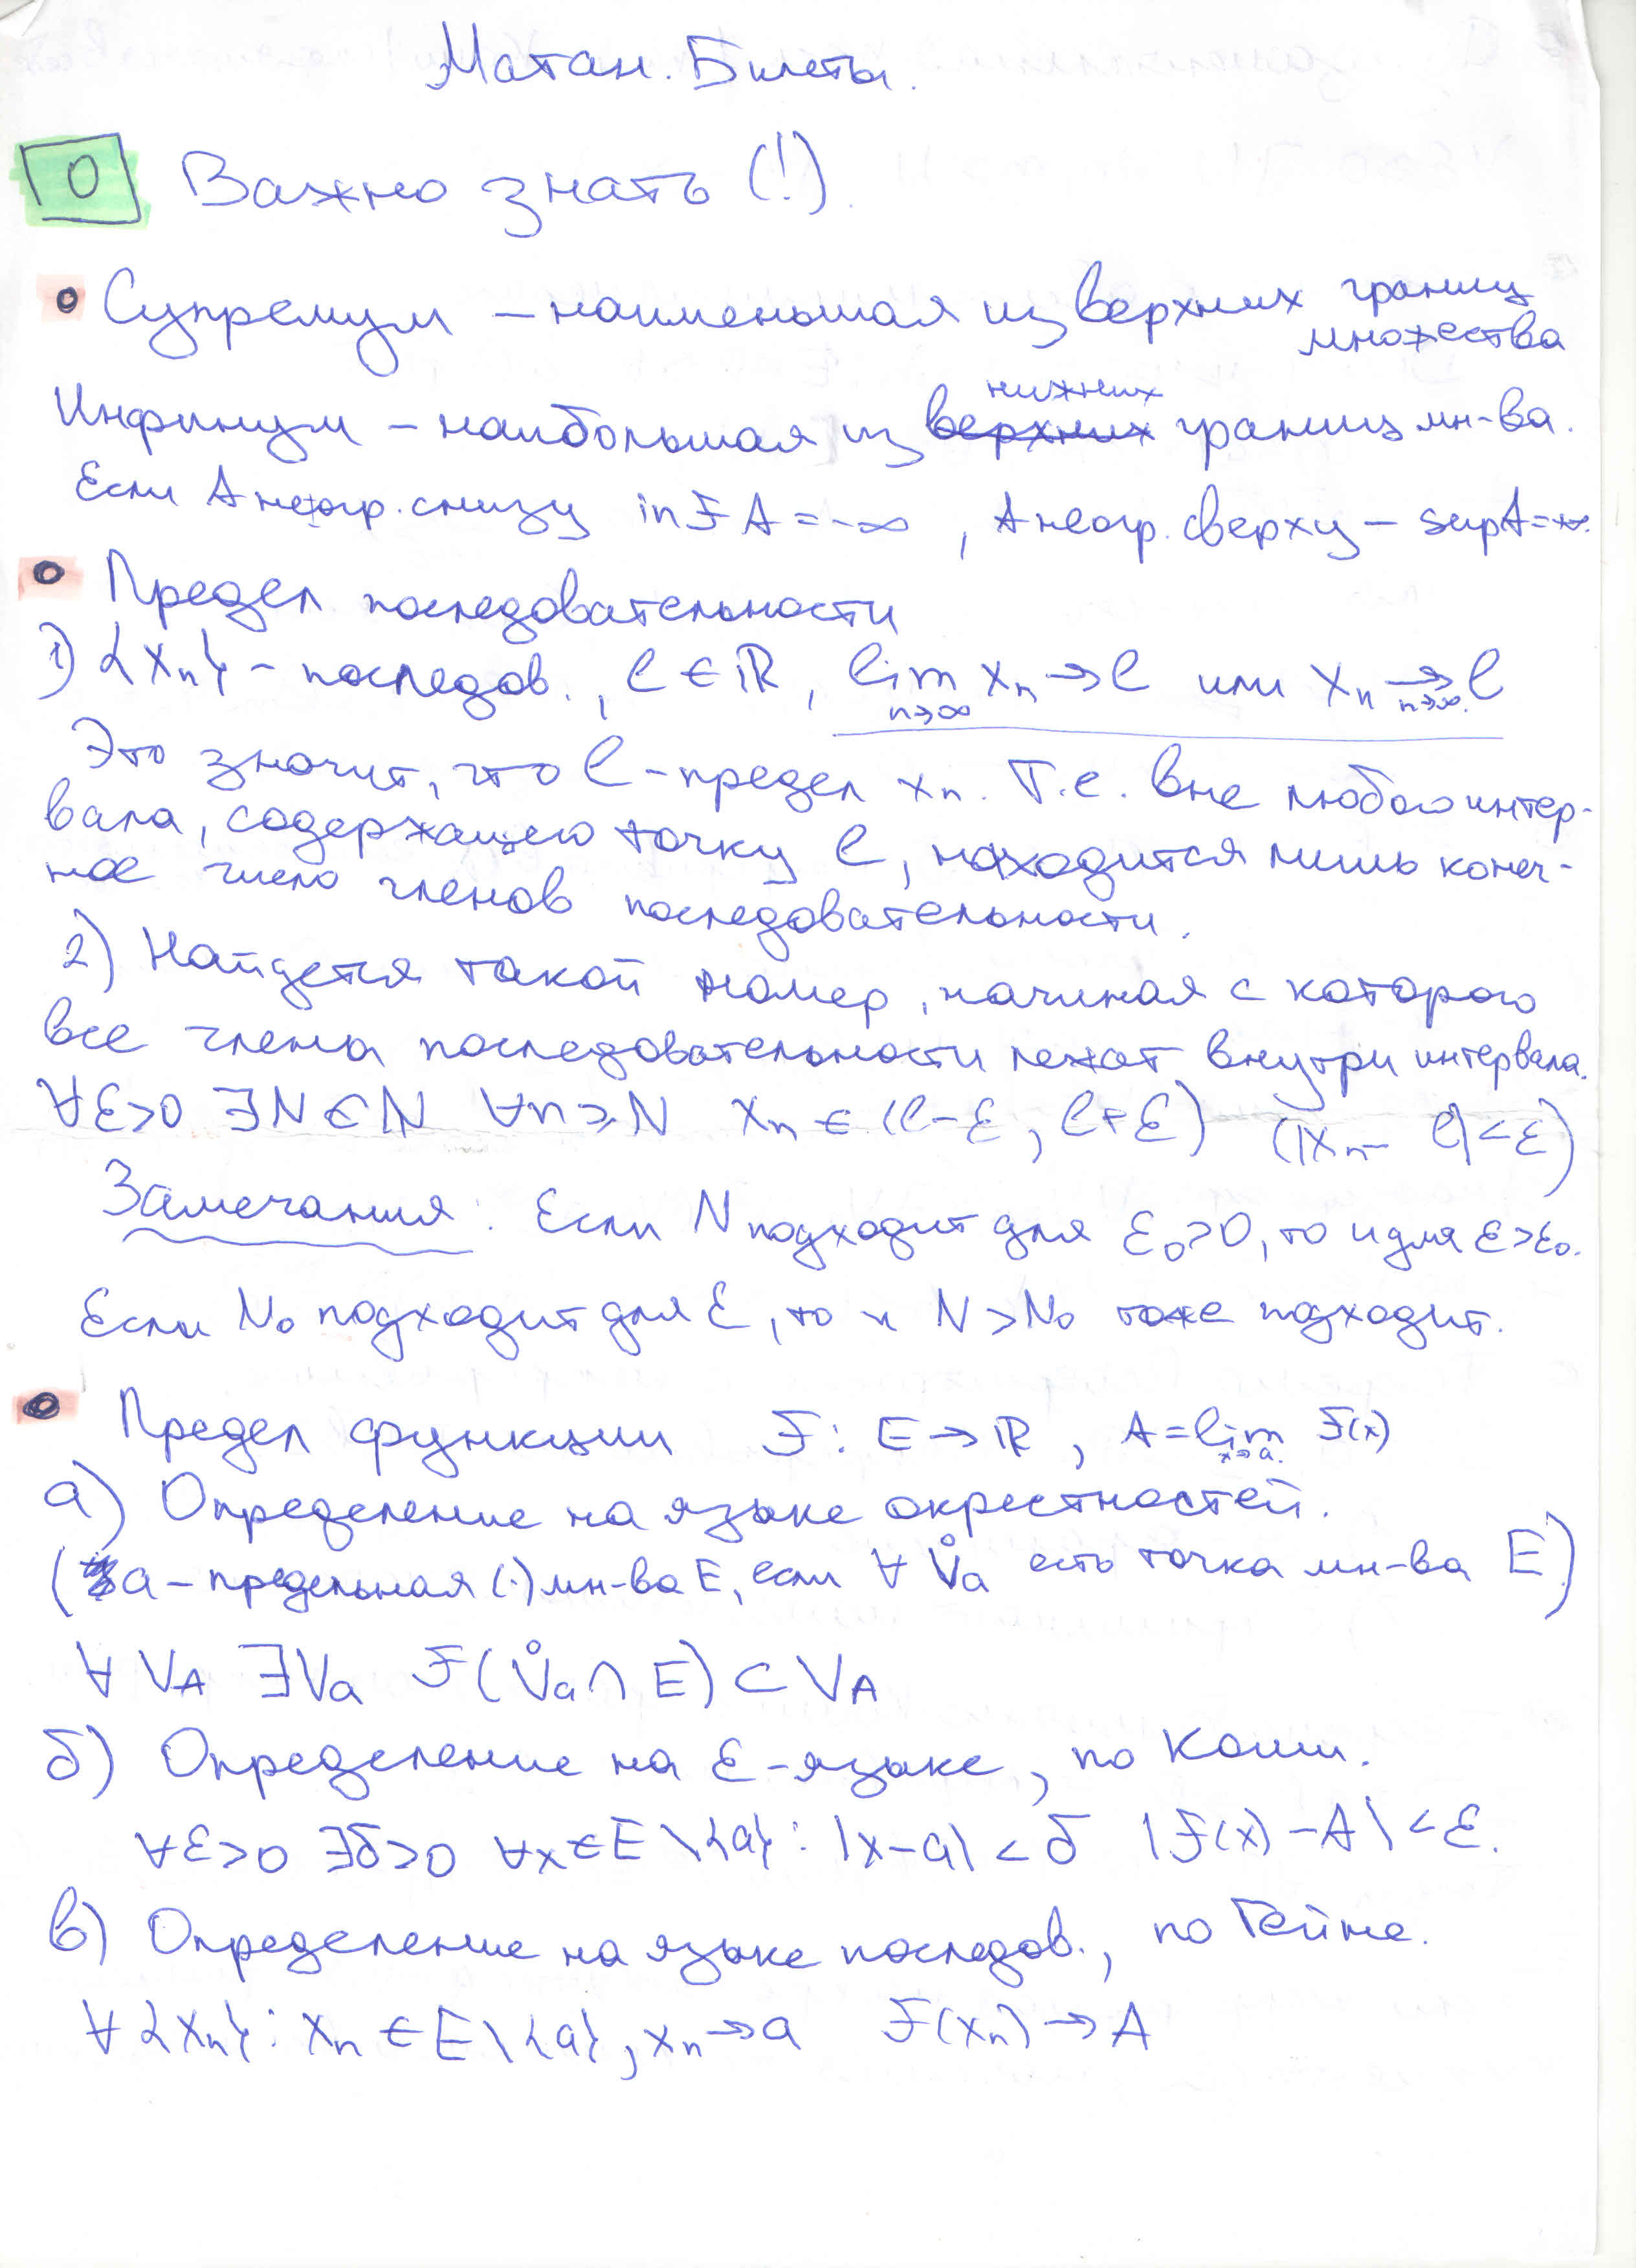 Матан. Билеты.
0 Важно знать (!).
• Супремум – наименьшая из верхних границ
множества
нижних
Инфинум – наибольшая из верхних границ мн-ва.
Если A неогр. снизу inf A = -∞, A неогр. сверху – sup A = +∞.
• Предел последовательности
1) {xₙ} – последов., l ∈ ℝ, lim xₙ → l или xₙ → l
n→∞ n→∞.
Это значит, что l – предел xₙ. Т.е. вне любого интер-
вала, содержащего точку l, находится лишь конеч-
ное число членов последовательности.
2) Найдется такой номер, начиная с которого
все члены последовательности лежат внутри интервала.
∀ε>0 ∃N∈ℕ ∀n≥N xₙ ∈ (l-ε, l+ε) (|xₙ - l|<ε)
Замечания: Если N подходит для ε₀>0, то и для ε>ε₀.
Если N₀ подходит для ε, то и N>N₀ тоже подходит.
• Предел функции f: E→ℝ, A = lim f(x)
x→a.
а) Определение на языке окрестностей.
(a – предельная (·) мн-ва E, если ∀ V̊ₐ есть точка мн-ва E)
∀ V_A ∃Vₐ f(V̊ₐ∩E) ⊂ V_A
б) Определение на ε-языке, по Коши.
∀ε>0 ∃δ>0 ∀x∈E\{a}: |x-a|<δ |f(x)-A|<ε.
в) Определение на языке последов., по Гейне.
∀{xₙ}: xₙ ∈ E\{a}, xₙ→a f(xₙ)→A